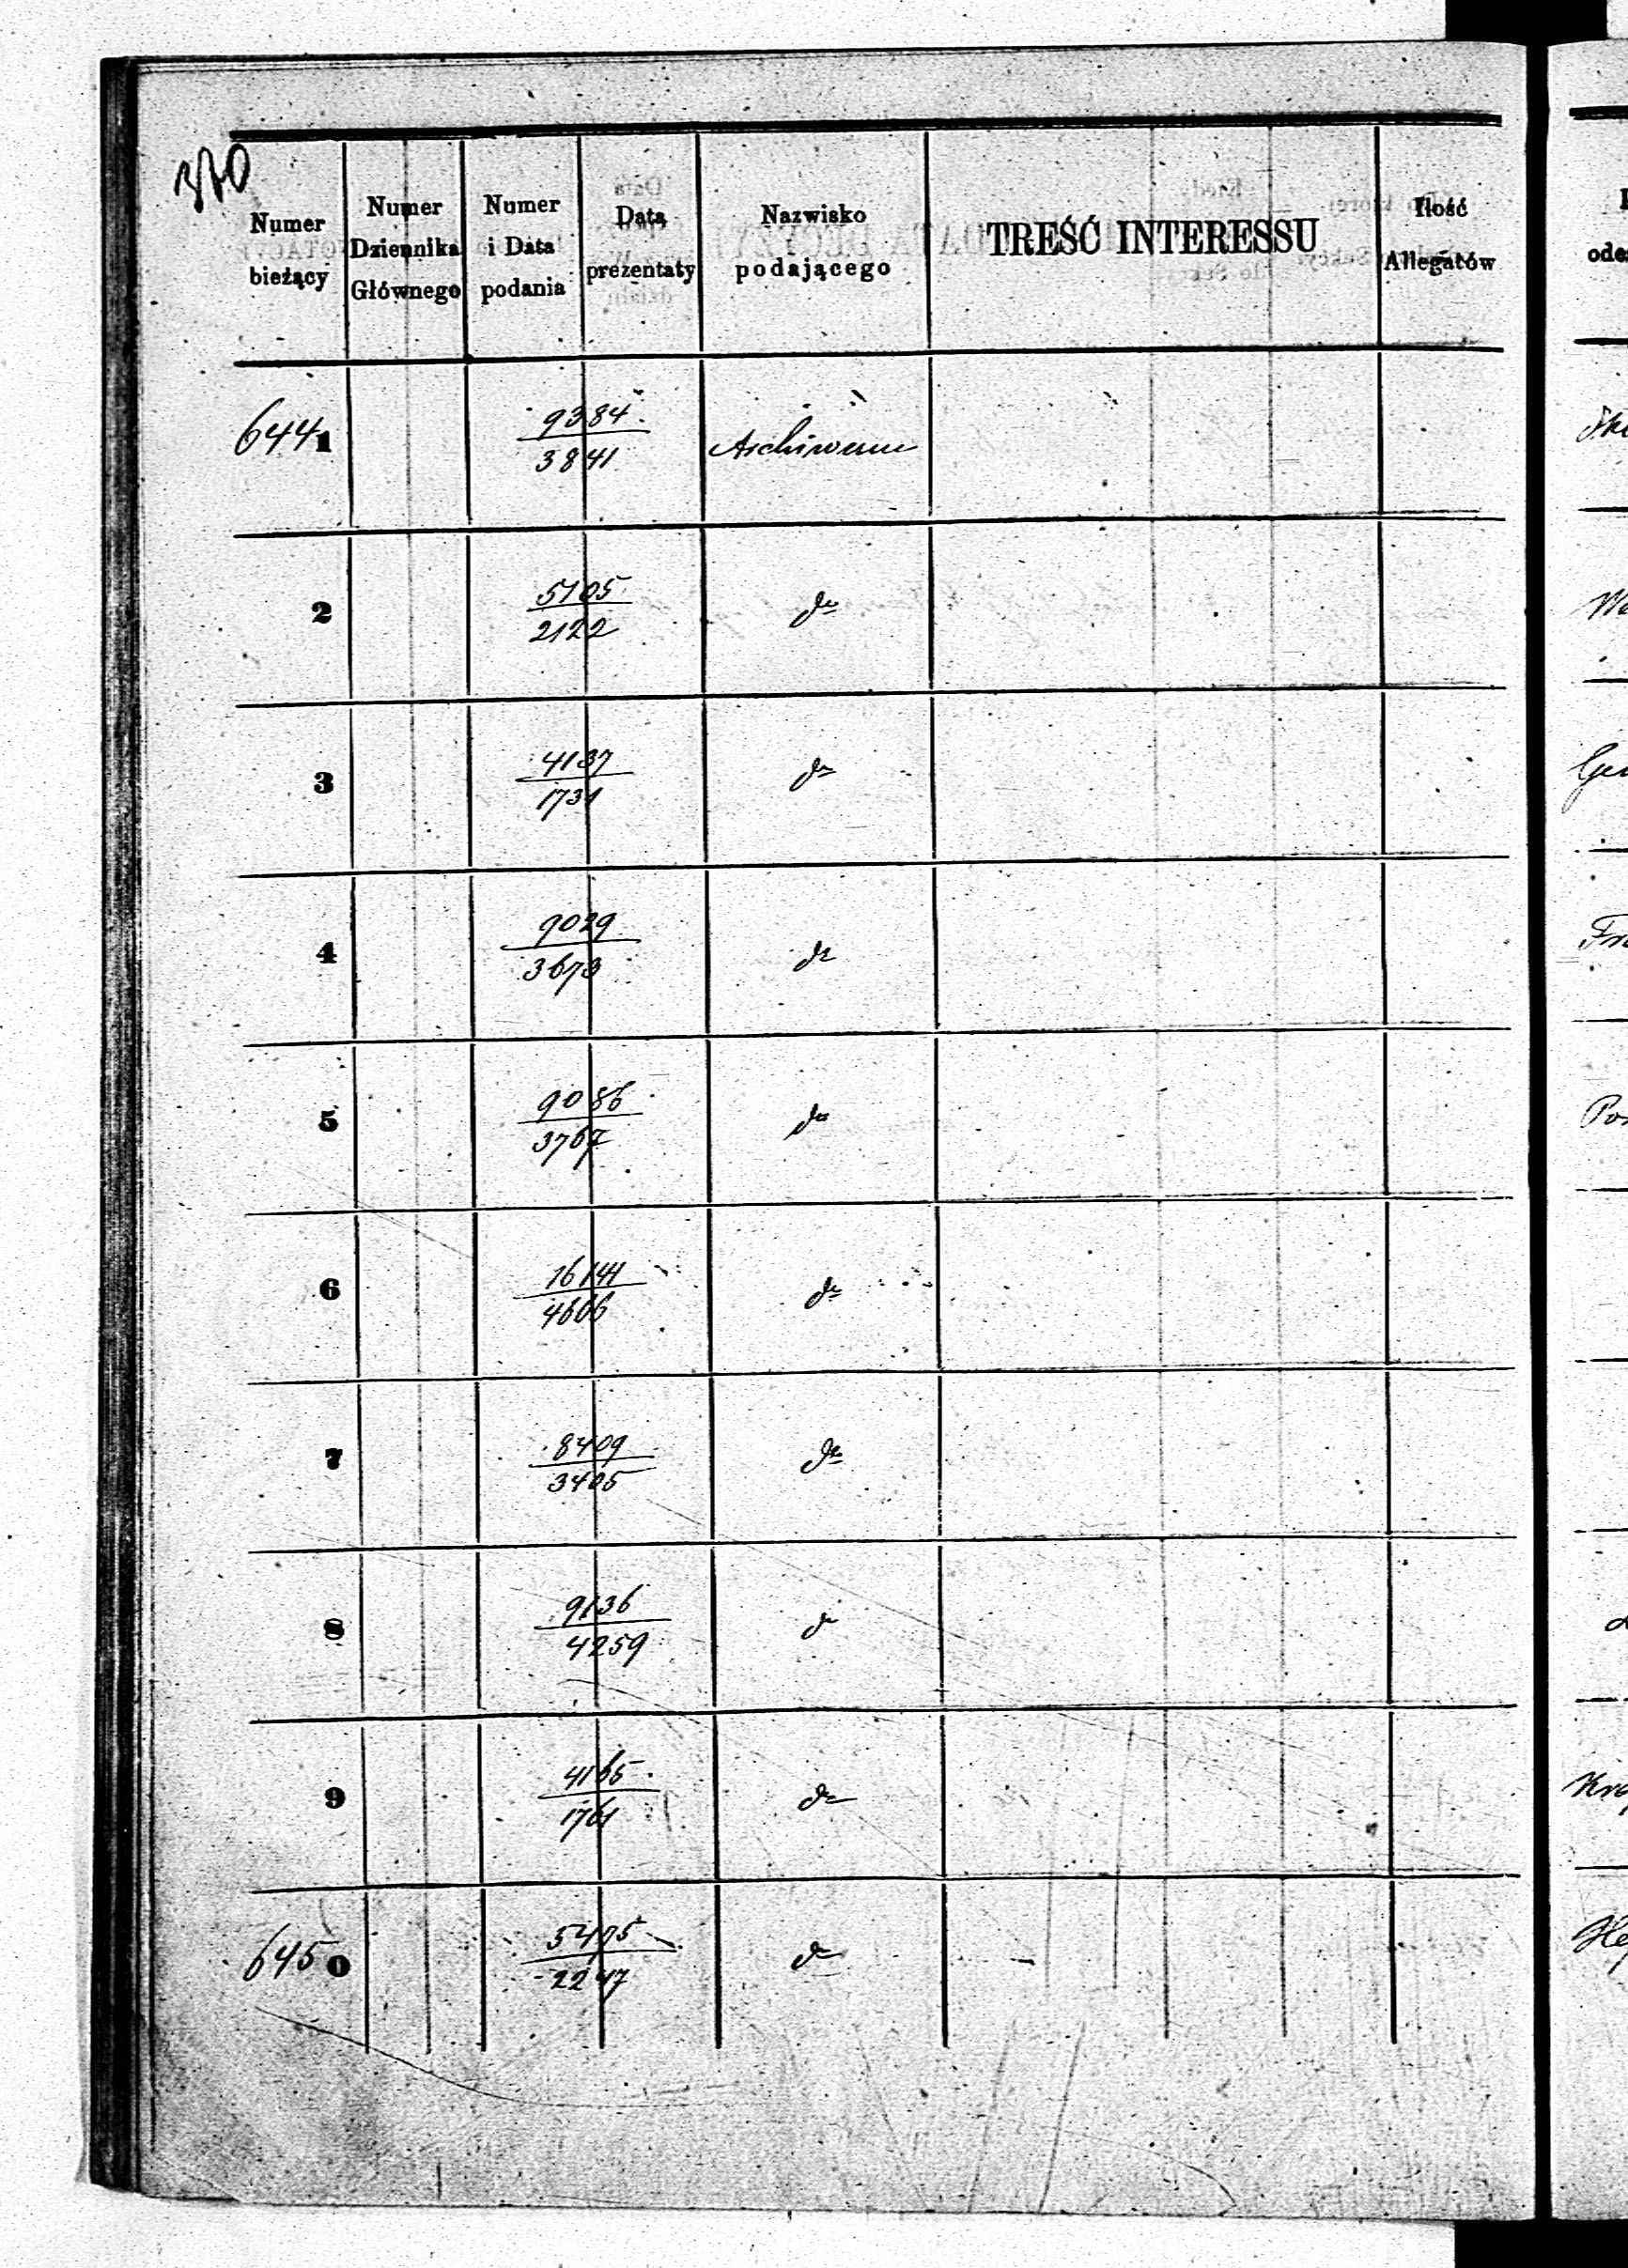 370
Numer bieżący
Numer Dziennika Głównego
Numer i Data podania
Data prezentaty
Nazwisko podającego
TREŚĆ INTERESSU
Ilość Allegatów
6441
9384
3841
Archiwum
2
5105
2122
do
3
4137
1731
do
4
9029
3673
do
5
9086
3767
do
6
16141
4606
do
7
8409
3405
do
8
9136
4259
do
9
4165
1761
do
6450
5475
2247
do